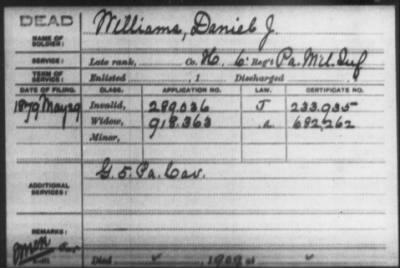 DEAD
NAME OF SOLDIER: Williams, Daniel J.
SERVICE: Late rank, Co. H, 6" Reg't Pa. Mil. Inf
TERM OF SERVICE: Enlisted , 1 Discharged
DATE OF FILING. CLASS. APPLICATION NO. LAW. CERTIFICATE NO.
1879 May 29 Invalid, 289,036 J 233,935
Widow, 918,363 682,262
Minor,
ADDITIONAL SERVICES: G. 5. Pa. Cav.
REMARKS:
Died , 1909 at